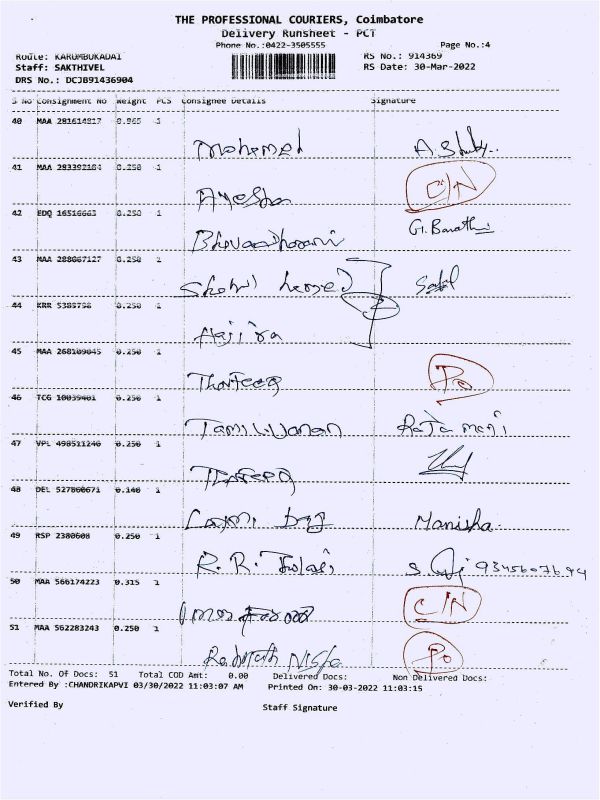 THE PROFESSIONAL COURIERS, Coimbatore
Delivery Runsheet - PCT
Phone No.:0422-3505555 Page No.:4
Route: KARUMBUKADAI RS No.: 914369
Staff: SAKTHIVEL RS Date: 30-Mar-2022
DRS No.: DCJB91436904
S No Consignment No Weight PCS Consignee Details Signature
40 MAA 281614817 0.965 1
Mohemed
41 MAA 283392184 0.250 1
Ayesha C/N
42 EDQ 16516663 0.250 1
G. Barathi
43 MAA 288067127 0.250 1
44 KRR 5385758 0.250 1
Hajira
45 MAA 268109045 0.250 1
Thowfeeq Po
46 TCG 10039401 0.250 1
Tamilvanan Raja mani
47 VPL 498511240 0.250 1
48 DEL 527860671 0.140 1
Laxmi Manisha
49 RSP 2380608 0.250 1
R. R. Tulasi
50 MAA 566174223 0.315 1
C/N
51 MAA 562283243 0.250 1
Rahmath Nisha Po
Total No. Of Docs: 51 Total COD Amt: 0.00 Delivered Docs: Non Delivered Docs:
Entered By :CHANDRIKAPVI 03/30/2022 11:03:07 AM Printed On: 30-03-2022 11:03:15
Verified By Staff Signature